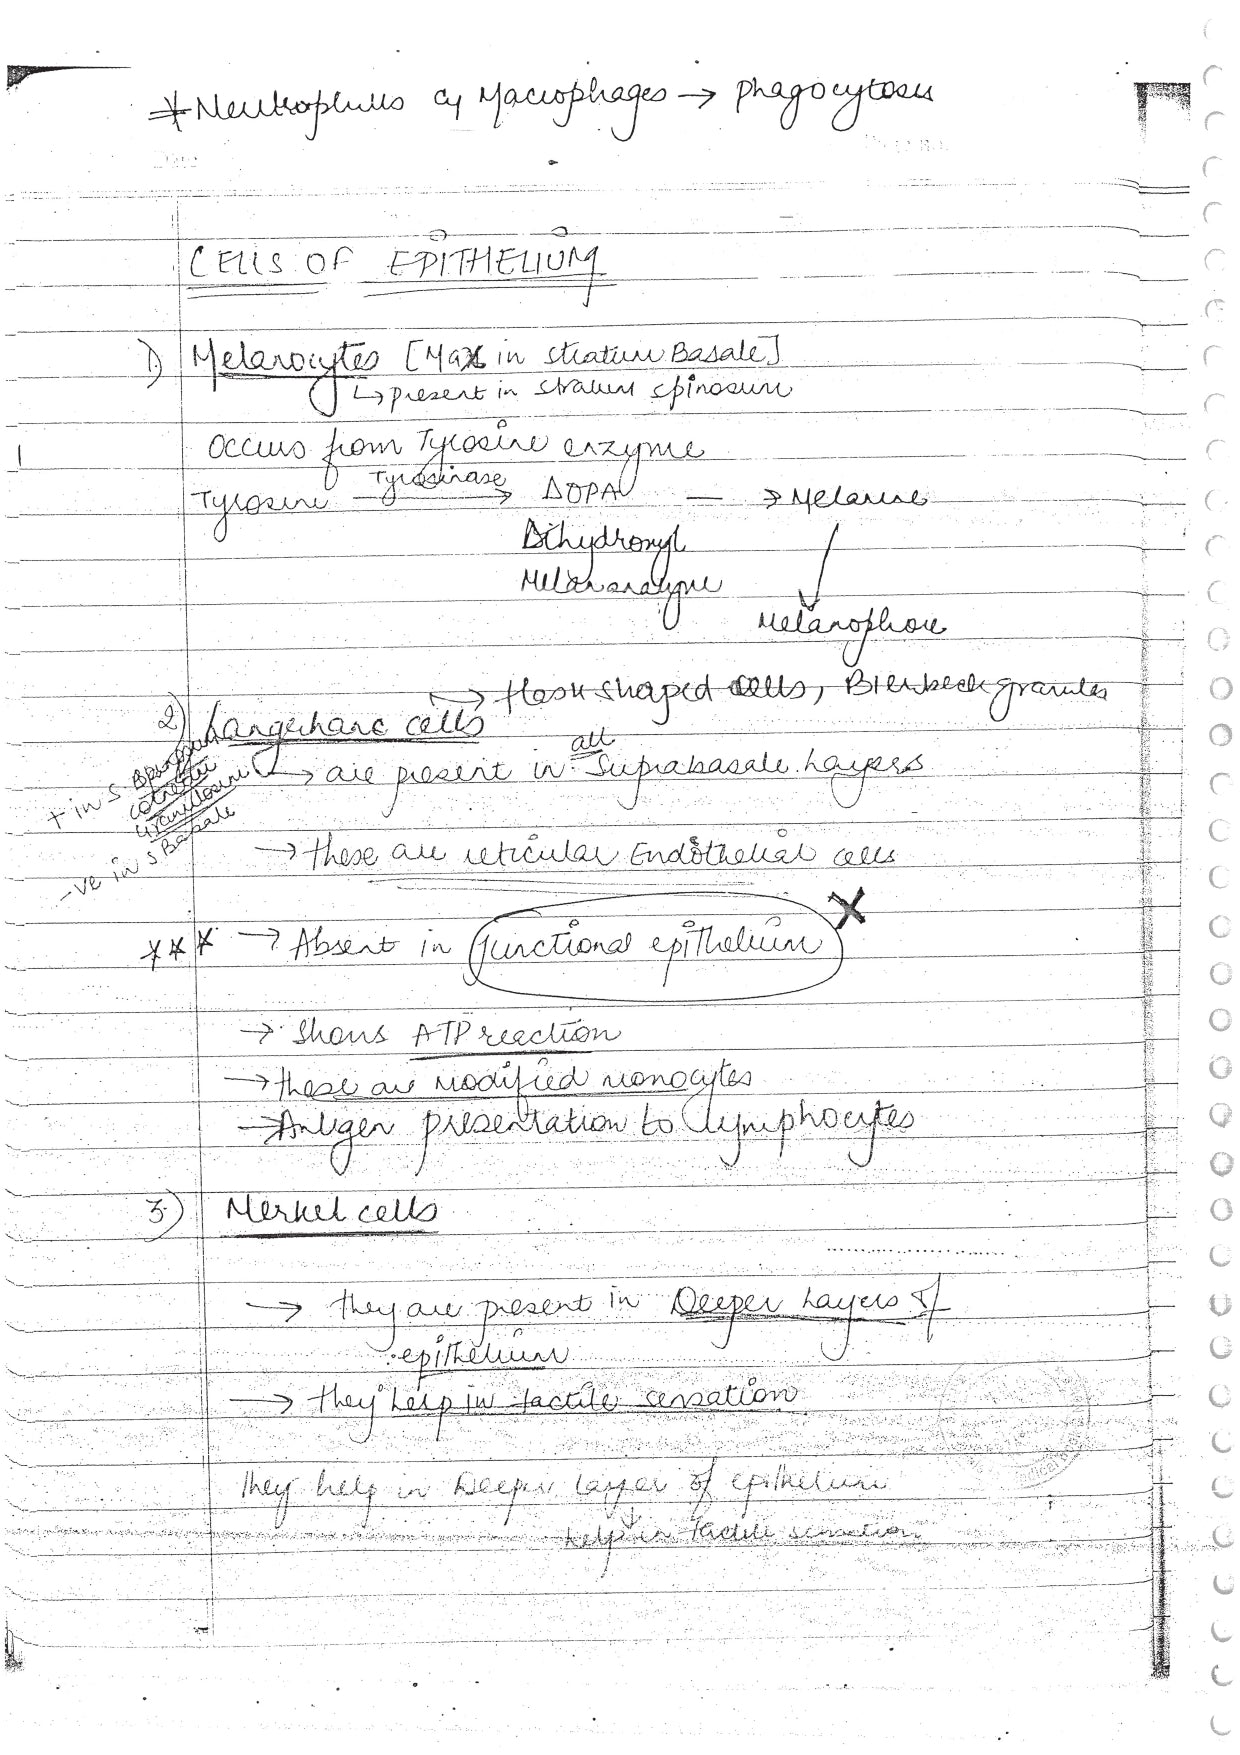 * Neutrophills & Macrophages → phagocytosis
CELLS OF EPITHELIUM
1) Melanocytes [Max in stratum Basale]
↳ present in stratum spinosum
Occurs from Tyrosine enzyme
Tyrosine —Tyrosinase→ DOPA — → Melanine
Dihydroxyl
Melanophore
→ flask shaped cells, Birbeck granules
2) Langerhans cells
→ are present in all Suprabasale Layers
+ in S
Granulosum
-ve in S Basale
→ these are reticular Endothelial cells
*** → Absent in Junctional epithelium X
→ shows ATP reaction
→ these are modified monocytes
→ Antigen presentation to lymphocytes
3.) Merkel cells
→ they are present in Deeper Layers of
epithelium
→ they help in tactile sensation
they help in Deeper layer of epithelium
↓
help in tactile sensation